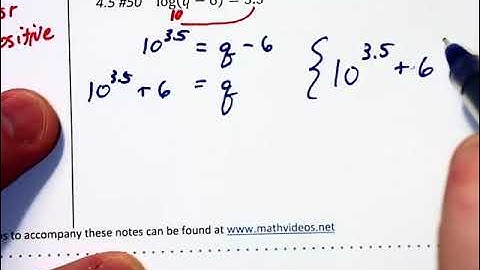 4.5 #50 log(q − 6) = 3.5
10
or
positive
10^3.5 = q - 6
10^3.5 + 6 = q
{ 10^3.5 + 6
to accompany these notes can be found at www.mathvideos.net